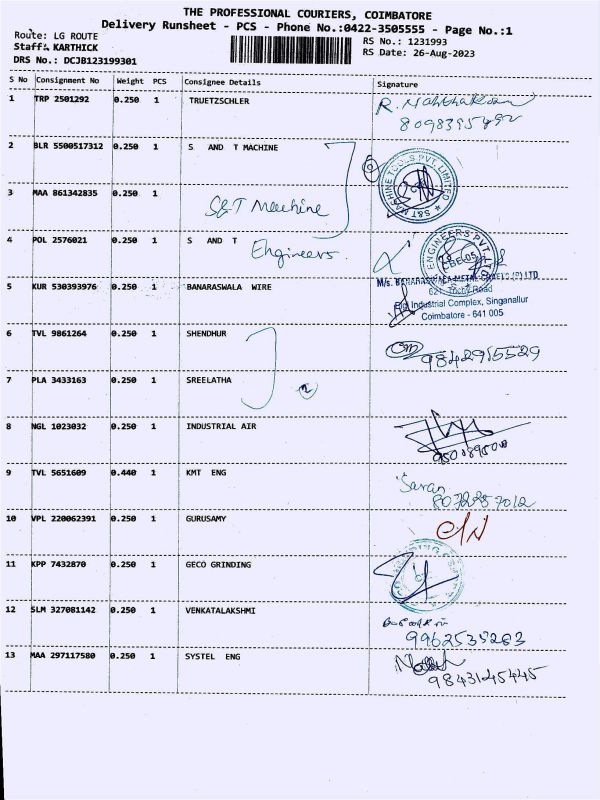 THE PROFESSIONAL COURIERS, COIMBATORE
Delivery Runsheet - PCS - Phone No.:0422-3505555 - Page No.:1
Route: LG ROUTE
RS No.: 1231993
Staff: KARTHICK
RS Date: 26-Aug-2023
DRS No.: DCJB123199301
S No Consignment No Weight PCS Consignee Details Signature
1 TRP 2501292 0.250 1 TRUETZSCHLER
2 BLR 5500517312 0.250 1 S AND T MACHINE
S&T MACHINE TOOLS PVT. LIMITED
3 MAA 861342835 0.250 1
S&T Machine
4 POL 2576021 0.250 1 S AND T
Engineers
ENGINEERS PVT.
CBE-05
5 KUR 530393976 0.250 1 BANARASWALA WIRE
Industrial Complex, Singanallur
Coimbatore - 641 005
6 TVL 9861264 0.250 1 SHENDHUR
9842915529
7 PLA 3433163 0.250 1 SREELATHA
2
8 NGL 1023032 0.250 1 INDUSTRIAL AIR
9 TVL 5651609 0.440 1 KMT ENG
Saran
8072257012
10 VPL 220062391 0.250 1 GURUSAMY
11 KPP 7432870 0.250 1 GECO GRINDING
12 SLM 327081142 0.250 1 VENKATALAKSHMI
9962535263
13 MAA 297117580 0.250 1 SYSTEL ENG
9843145445